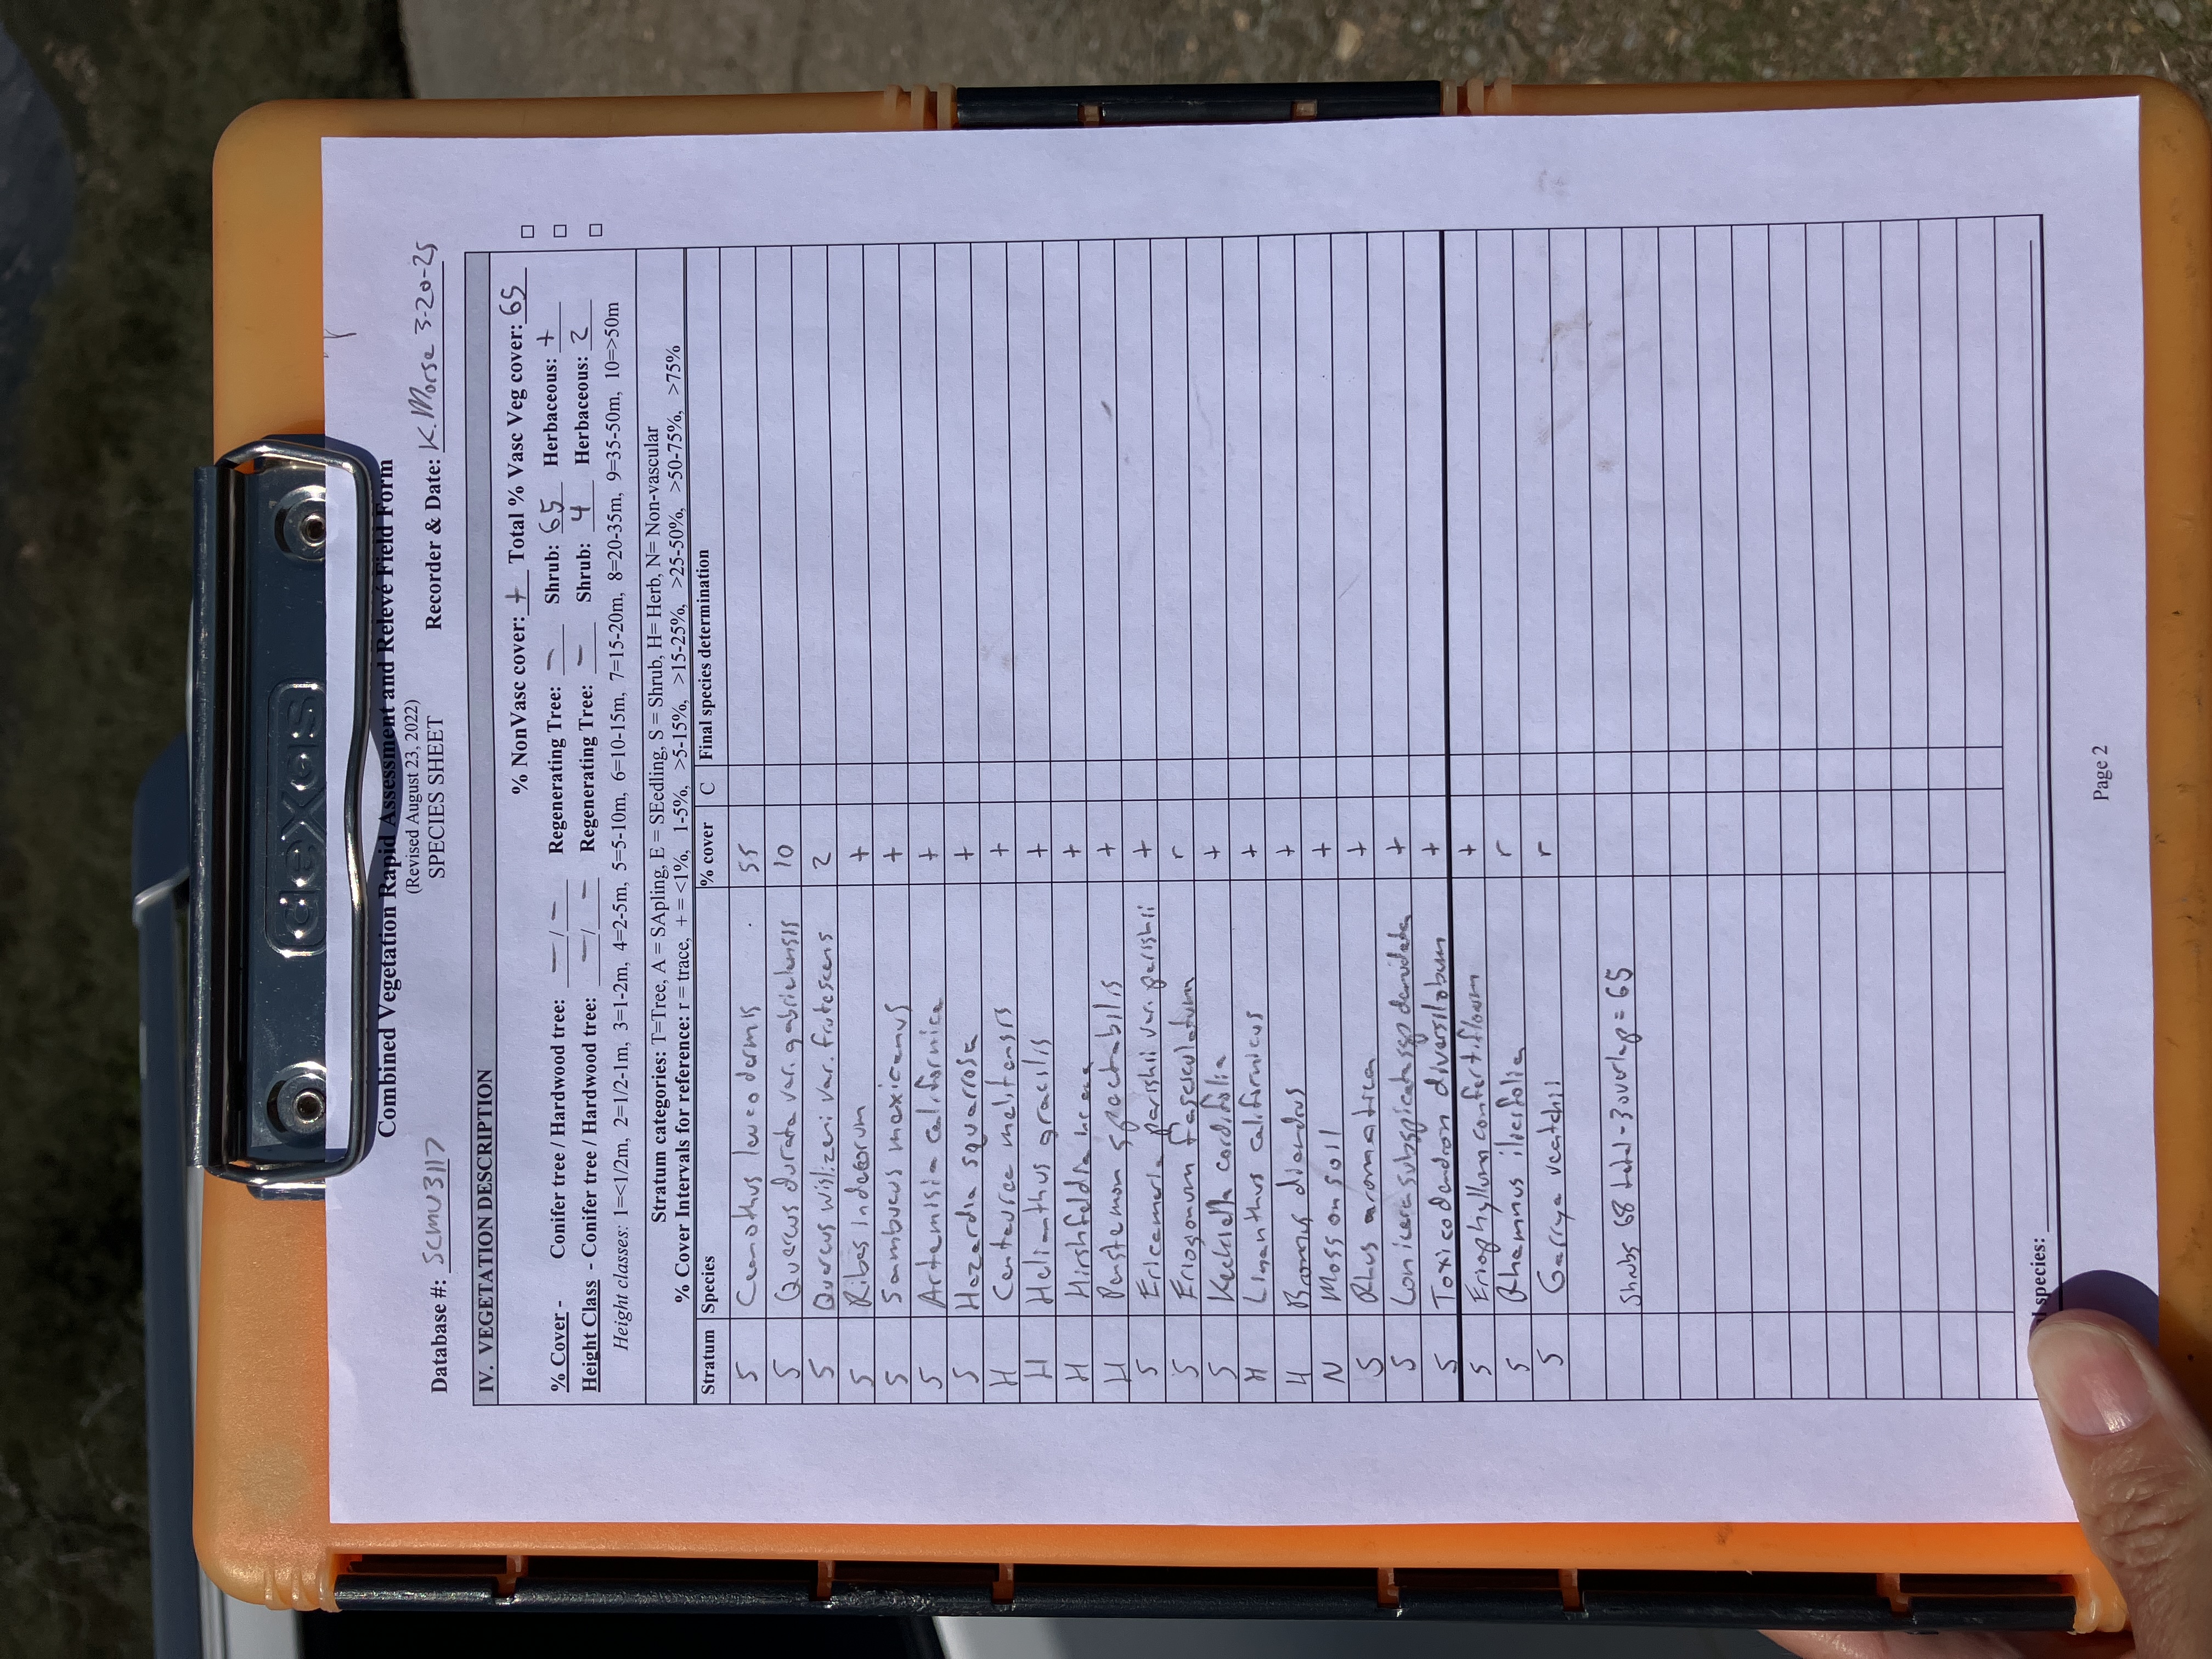 dexas
Combined Vegetation Rapid Assessment and Relevé Field Form
(Revised August 23, 2022)
SPECIES SHEET
Database #: SCMU3117 Recorder & Date: K. Morse 3-20-25
IV. VEGETATION DESCRIPTION
% NonVasc cover: + Total % Vasc Veg cover: 65
% Cover - Conifer tree / Hardwood tree: — / — Regenerating Tree: — Shrub: 65 Herbaceous: +
Height Class - Conifer tree / Hardwood tree: — / — Regenerating Tree: — Shrub: 4 Herbaceous: 2
Height classes: 1=<1/2m, 2=1/2-1m, 3=1-2m, 4=2-5m, 5=5-10m, 6=10-15m, 7=15-20m, 8=20-35m, 9=35-50m, 10=>50m
Stratum categories: T=Tree, A = SApling, E = SEedling, S = Shrub, H= Herb, N= Non-vascular
% Cover Intervals for reference: r = trace, + = <1%, 1-5%, >5-15%, >15-25%, >25-50%, >50-75%, >75%
Stratum Species % cover C Final species determination
S Ceanothus leucodermis 55
S Quercus durata var. gabrielensis 10
S Quercus wislizeni var. frutescens 2
S Ribes indecorum +
S Sambucus mexicanus +
S Artemisia californica +
S Hazardia squarrosa +
H Centaurea melitensis +
H Helianthus gracilis +
H Hirshfeldia incana +
H Penstemon spectabilis +
S Ericameria parishii var. parishii +
S Eriogonum fasciculatum r
S Keckiella cordifolia +
H Lmanthus californicus +
H Bromus diandrus +
N Moss on soil +
S Rhus aromatica +
S Lonicera subspicata ssp denudata +
S Toxicodendron diversilobum +
S Eriophyllum confertiflorum +
S Rhamnus ilicifolia r
S Garrya veatchii r
Shrubs 68 total - 3 overlap = 65
species:
Page 2